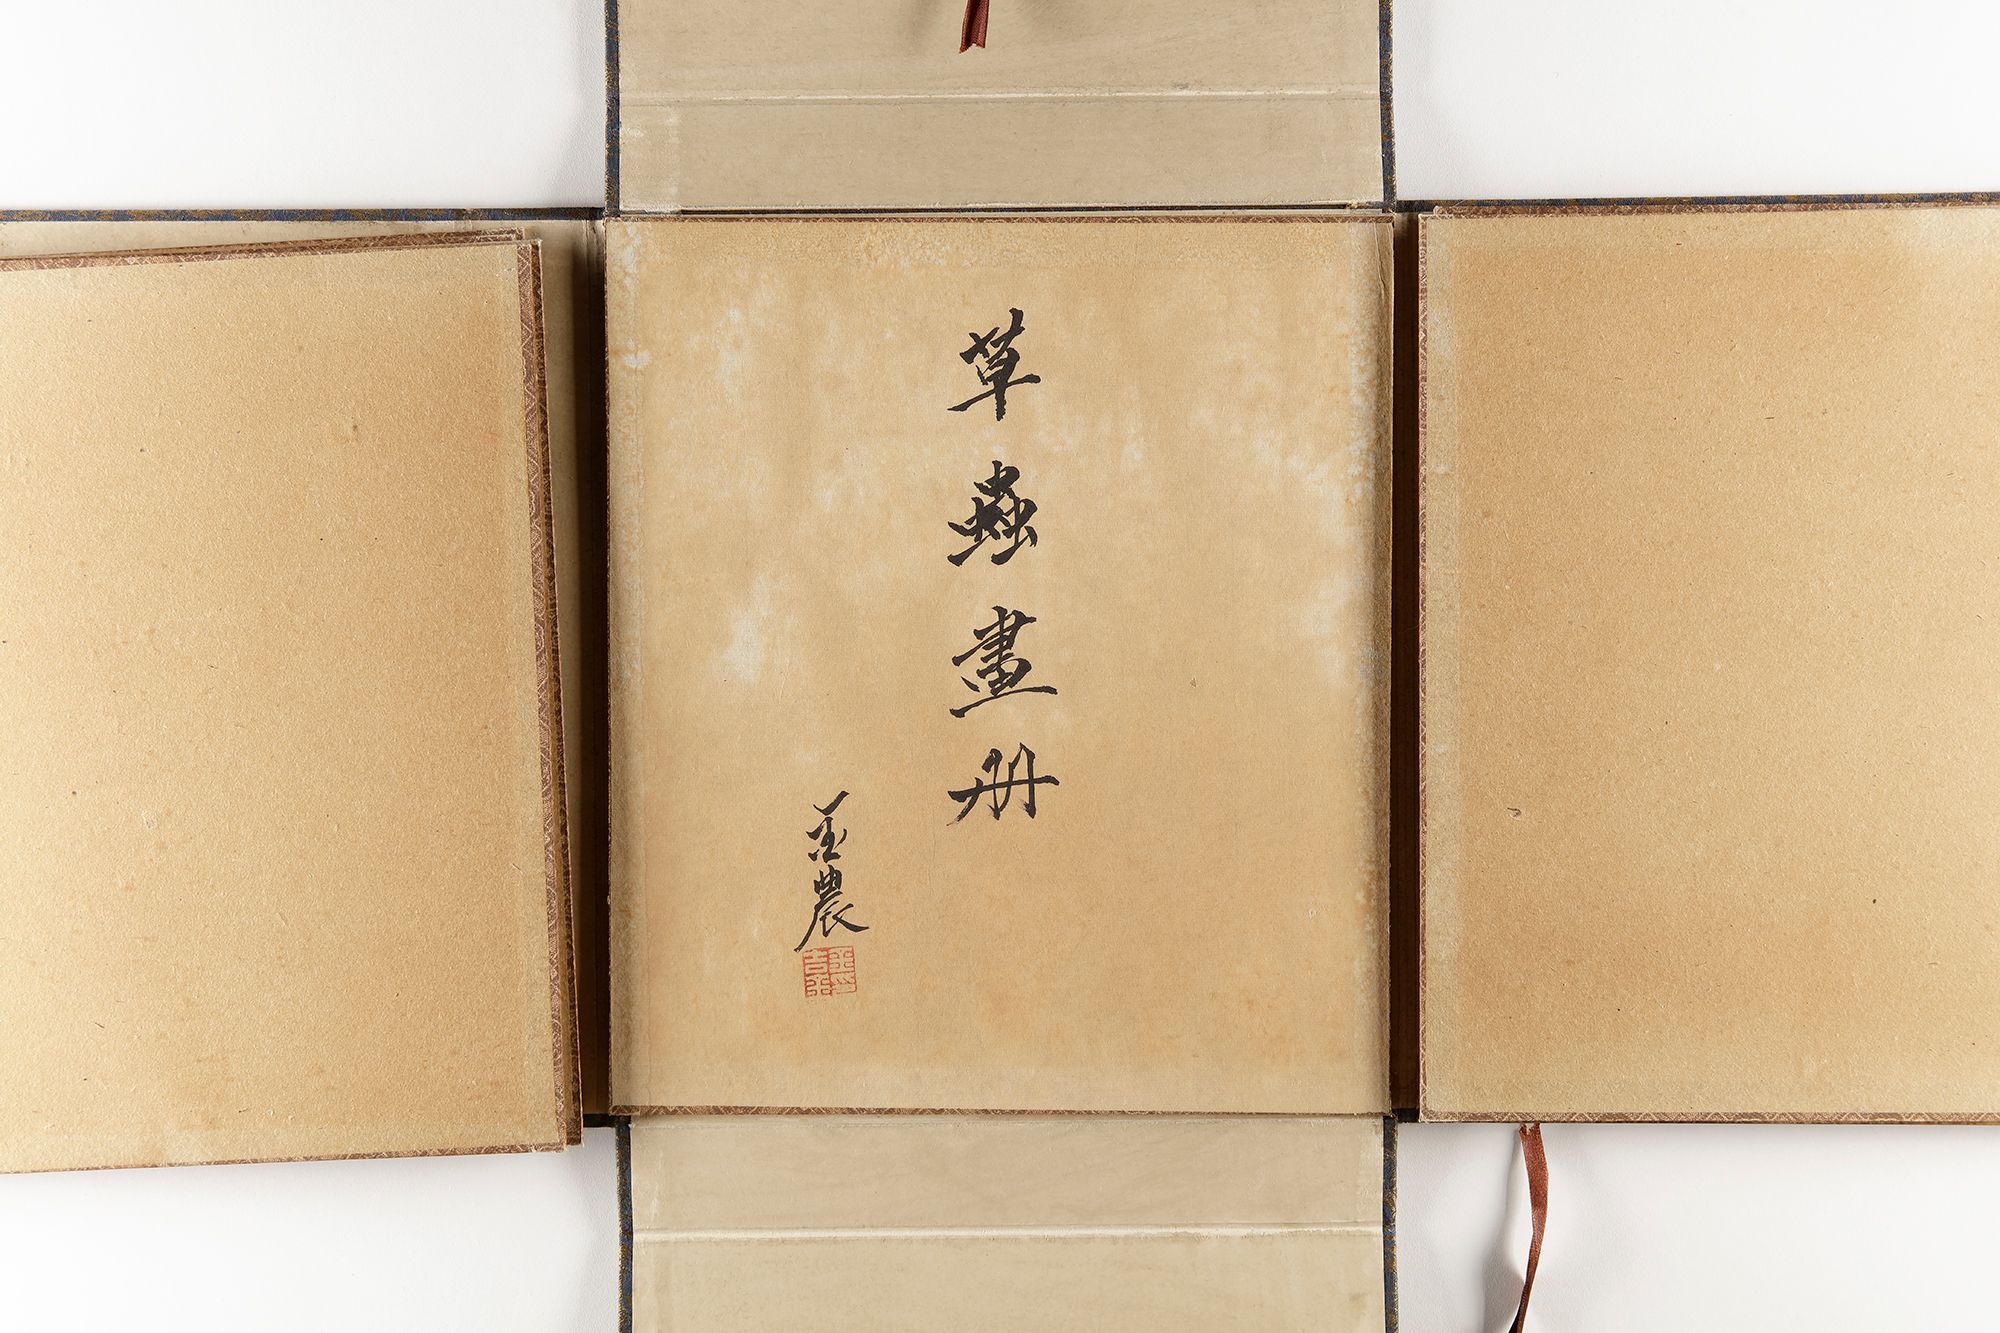 草蟲畫册
金農